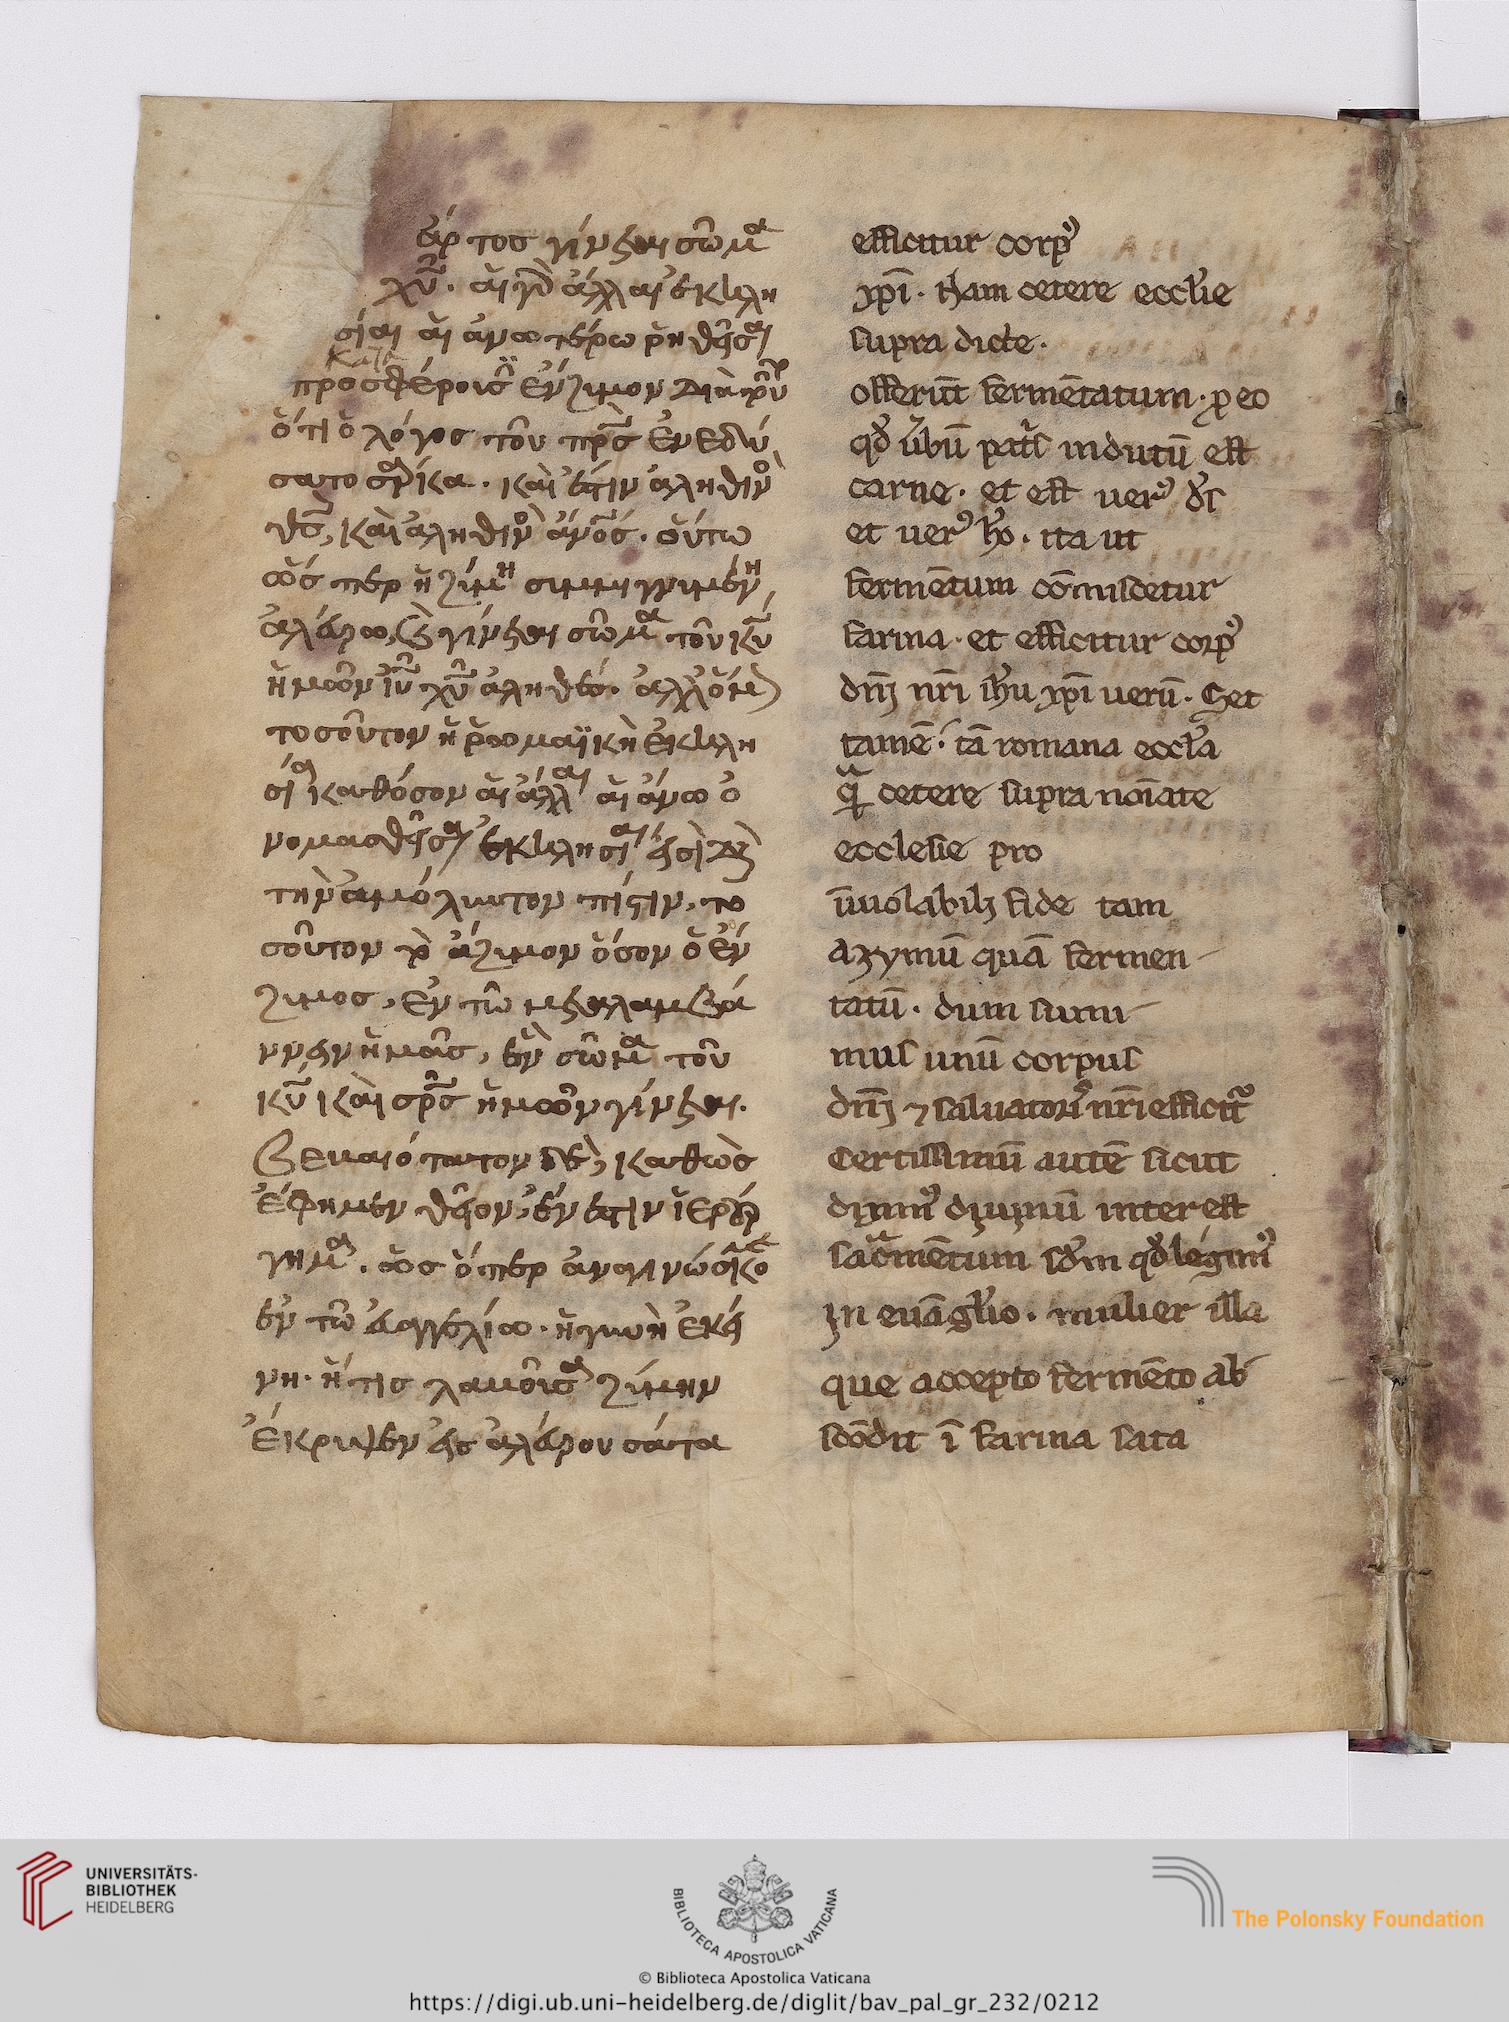 ἄρτος γίνεται σῶμα
χυ. αἱ γὰρ ἄλλαι ἐκκλη
σίαι αἱ ἀνωτέρω ῥηθεῖσαι
προσφέρουσιν ἔνζυμον διὰ
ὅτι ὁ λόγος τοῦ πρς ἐνεδύ
σατο σάρκα. καὶ ἔστιν ἀληθινὸς
θς, καὶ ἀληθινὸς ἄνος. οὕτω
ὥσπερ ἡ ζύμη συμμιγνυμένη
ἀλεύρω, καὶ γίνεται σῶμα τοῦ κυ
ἡμῶν ιυ χυ ἀληθές. ἀλλ' ὅμως
τοσοῦτον ἡ ῥωμαϊκὴ ἐκκλη
σία καθόσον αἱ ἄλλαι αἱ ἄνω ὀ
νομασθεῖσαι ἐκκλησίαι εἰσὶ διὰ
τὴν ἀμόλυντον πίστιν, το
σοῦτον τὸ ἄζυμον ὅσον ὁ ἔν
ζυμος, ἐν τῶ μεταλαμβά
νειν ἡμᾶς, ἓν σῶμα τοῦ
κυ καὶ σρς ἡμῶν γίνεται.
βεβαιότατον δὲ, καθὼς
ἔφημεν θεῖον, ἕν ἐστιν ἱερούρ
γημα. ὡς ὅπερ ἀναγινώσκομεν
ἐν τῶ εὐαγγελίω. ἡ γυνὴ ἐκεί
νη. ἥτις λαβοῦσα ζύμην
ἔκρυψεν εἰς ἀλεύρου σάτα
efficitur corp9
xpi. Nam cetere ecclie
supra dicte.
offeriut fermetatum. p eo
qd ubu patis indutu est
carne. et est uer9 ds
et uer9 ho. ita ut
fermetum comiscetur
farina. et efficitur corp9
dni nri ihu xpi ueru. Set
tame. ta romana eccla
qa cetere supra noiate
ecclesie pro
iuiolabili fide tam
azymu qua fermen
tatu. dum sumi
mus unu corpus
dni 7 saluatoris nri efficit
Certissimu aute sicut
dixim9 diuinu inter est
sacmetum scdm qd legim9
In euaglio. mulier illa
que accepto fermeto ab
scodit i farina sata
UNIVERSITÄTS-
BIBLIOTHEK
HEIDELBERG
BIBLIOTECA APOSTOLICA VATICANA
The Polonsky Foundation
© Biblioteca Apostolica Vaticana
https://digi.ub.uni-heidelberg.de/diglit/bav_pal_gr_232/0212